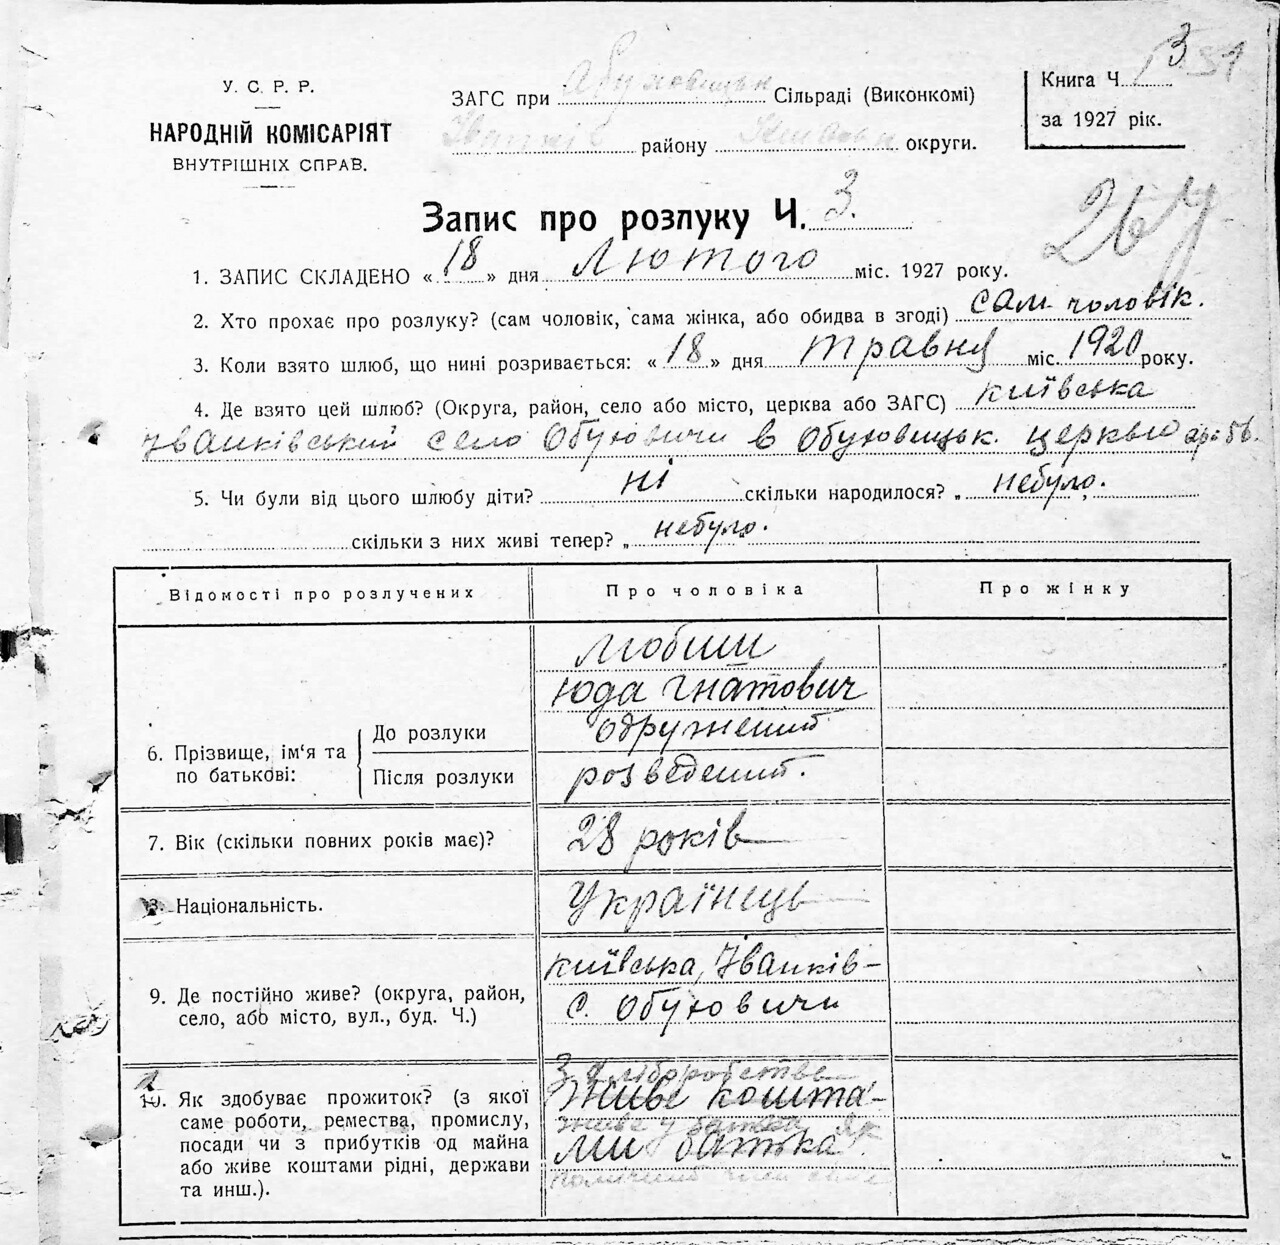 3
У. С. Р. Р.
НАРОДНІЙ КОМІСАРІЯТ
ВНУТРІШНІХ СПРАВ.
ЗАГС при Сільраді (Виконкомі)
району округи.
Книга Ч. 3
за 1927 рік.
Запис про розлуку Ч. 3.
1. ЗАПИС СКЛАДЕНО «18» дня Лютого міс. 1927 року.
2. Хто прохає про розлуку? (сам чоловік, сама жінка, або обидва в згоді) сам чоловік.
3. Коли взято шлюб, що нині розривається: «18» дня травня міс. 1920 року.
4. Де взято цей шлюб? (Округа, район, село або місто, церква або ЗАГС) Київська
Іванківський село Обуховичи в Обуховицьк. церкві
5. Чи були від цього шлюбу діти? ні скільки народилося? „ небуло.
скільки з них живі тепер? „ небуло.
Відомості про розлучених Про чоловіка Про жінку
6. Прізвище, ім'я та по батькові: До розлуки Після розлуки
юда Гнатович
одружений
розведений.
7. Вік (скільки повних років має)? 28 років
8. Національність. Українець
9. Де постійно живе? (округа, район, Київська, Іванків-
село, або місто, вул., буд. Ч.) с. Обуховичи
З хліборобства
10. Як здобуває прожиток? (з якої Живе кошта-
саме роботи, ремества, промислу, живе у батька як
посади чи з прибутків од майна ми батька.
або живе коштами рідні, держави
та инш.).